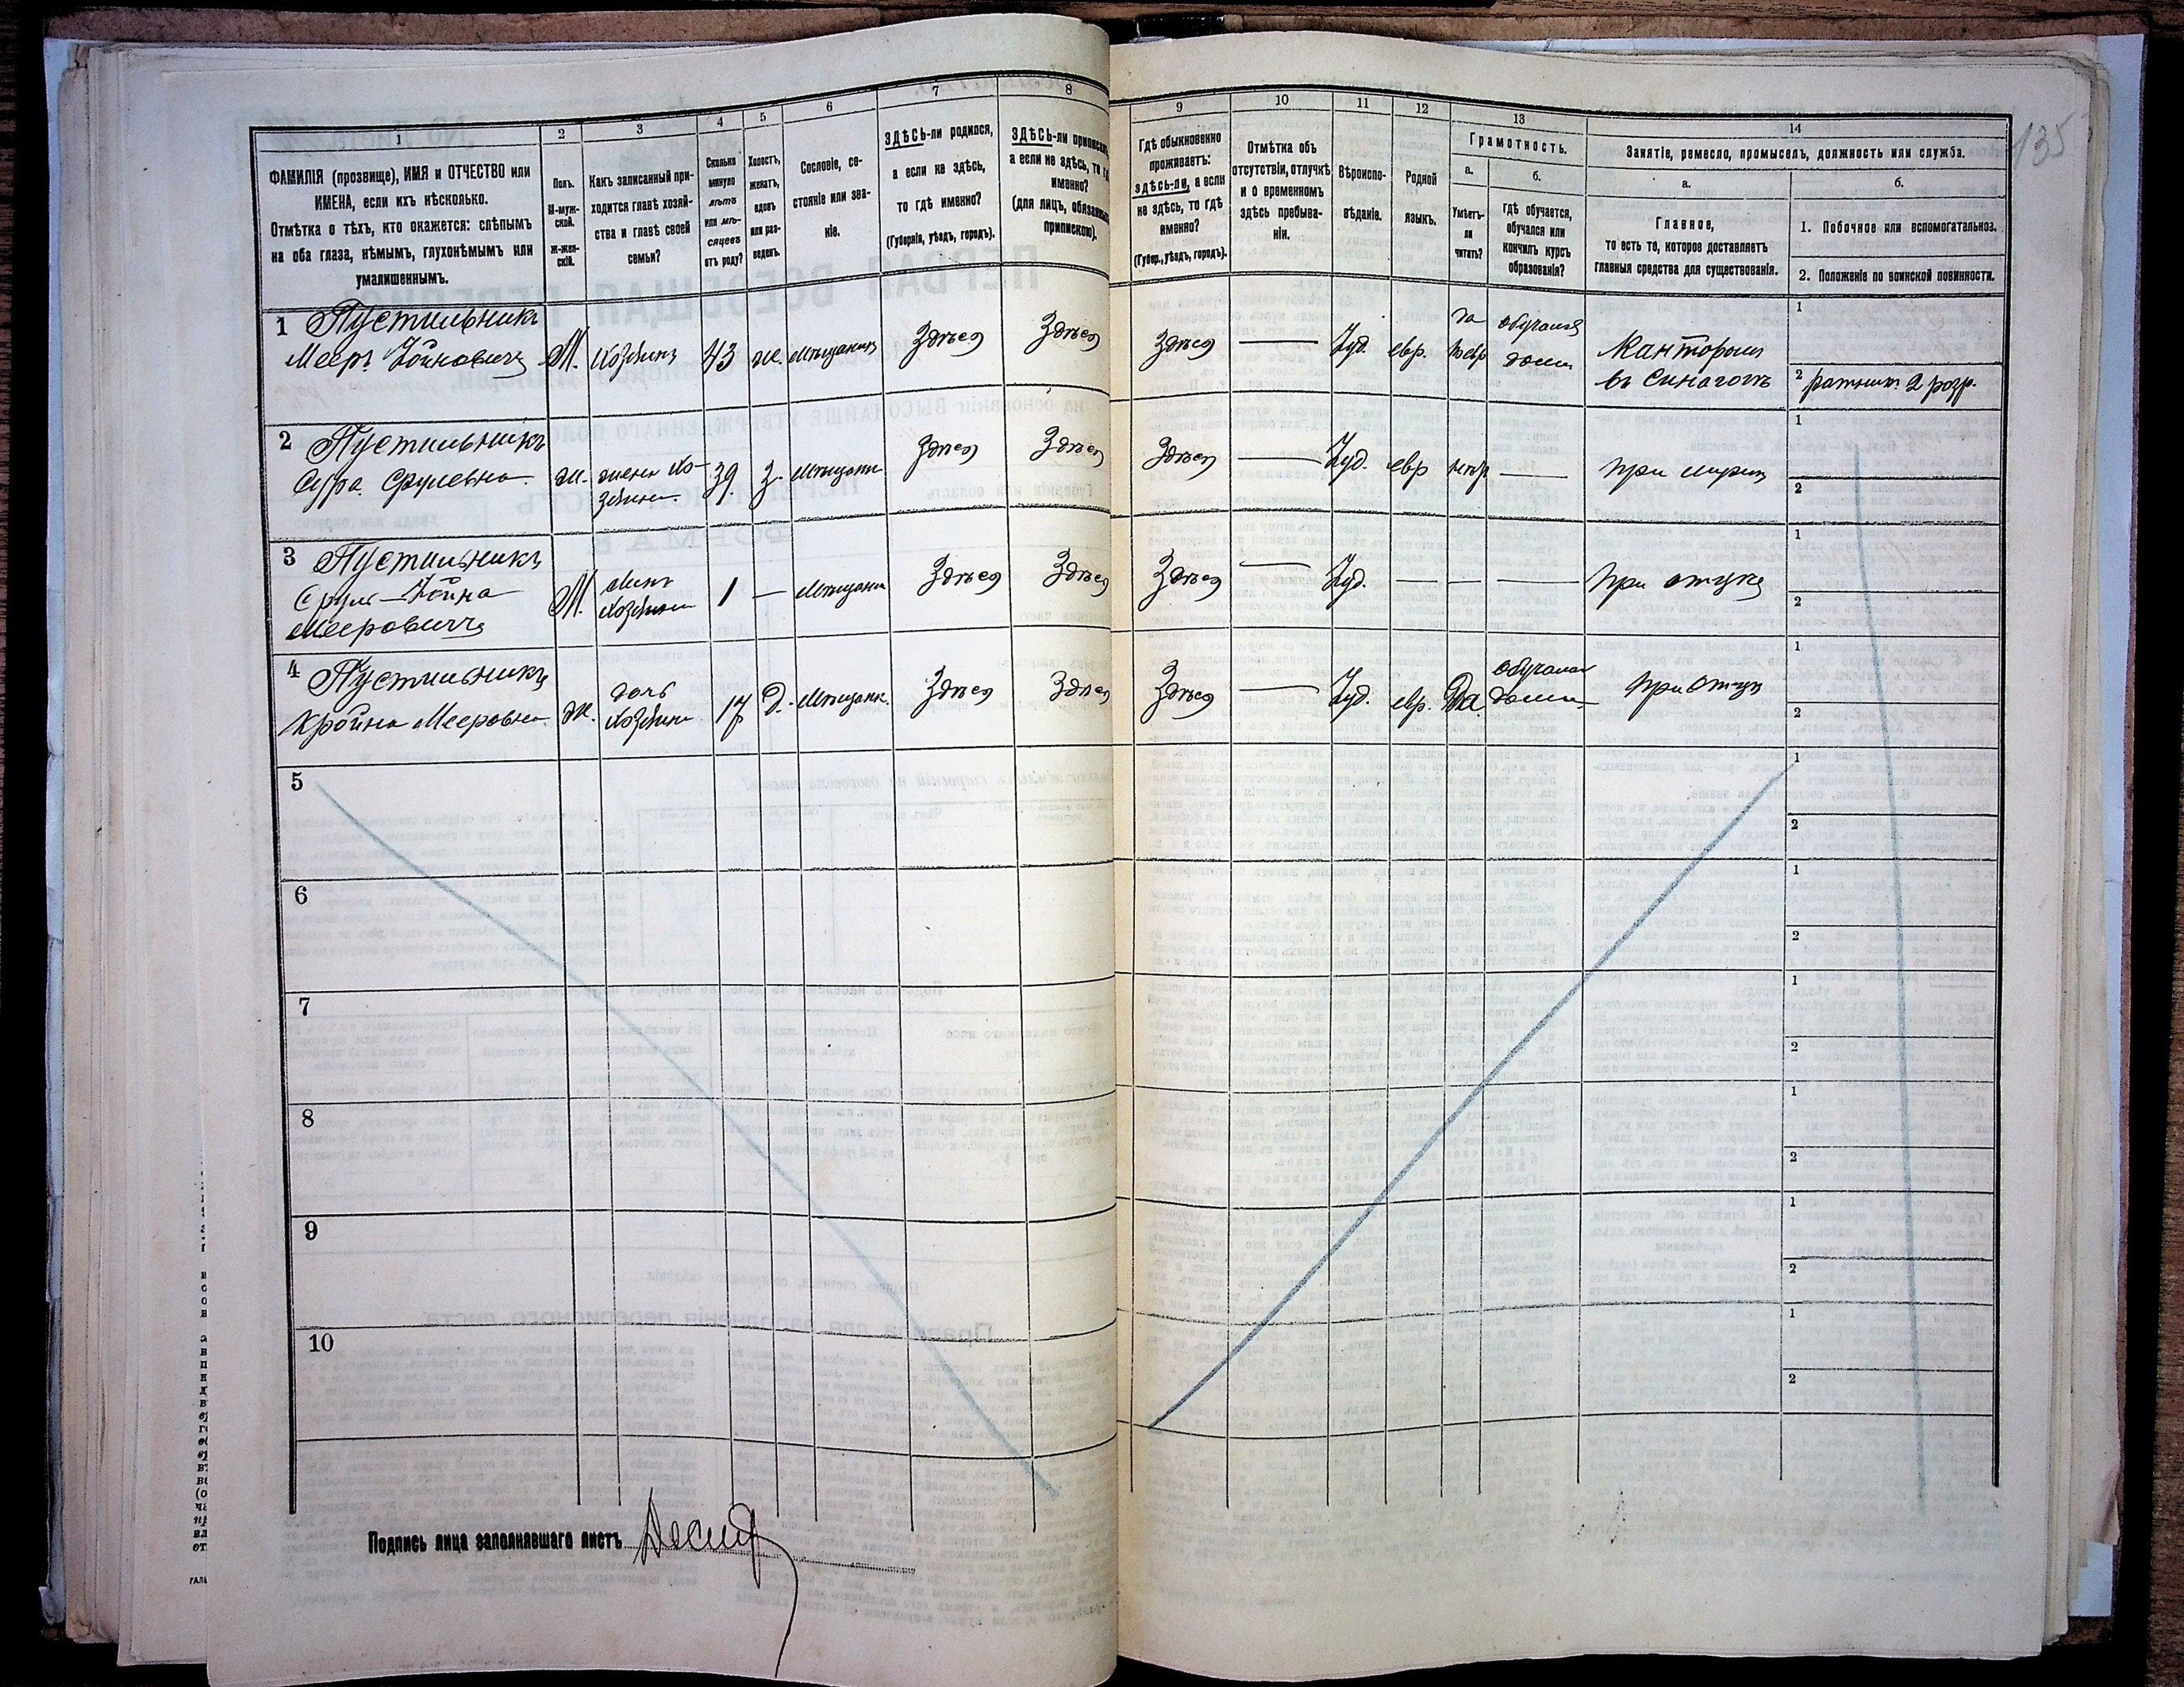 135
1
2
3
4
5
6
7
8
9
10
11
12
13
14
ФАМИЛІЯ (прозвище), ИМЯ и ОТЧЕСТВО или
ИМЕНА, если ихъ нѣсколько.
Отмѣтка о тѣхъ, кто окажется: слѣпымъ
на оба глаза, нѣмымъ, глухонѣмымъ или
умалишеннымъ.
Полъ.
М-муж-
ской.
Ж-жен-
скій.
Какъ записанный при-
ходится главѣ хозяй-
ства и главѣ своей
семьи?
Сколько
минуло
лѣтъ
или мѣ-
сяцевъ
отъ роду?
Холостъ,
женатъ,
вдовъ
или раз-
веденъ.
Сословіе, со-
стояніе или зва-
ніе.
ЗДѢСЬ-ли родился,
а если не здѣсь,
то гдѣ именно?
(Губернія, уѣздъ, городъ).
ЗДѢСЬ-ли приписанъ,
а если не здѣсь, то гдѣ
именно?
(для лицъ, обязанныхъ
припискою).
Гдѣ обыкновенно
проживаетъ:
здѣсь-ли, а если
не здѣсь, то гдѣ
именно?
(Губер., уѣздъ, городъ).
Отмѣтка об
отсутствіи, отлучкѣ
и о временномъ
здѣсь пребыва-
ніи.
Вѣроиспо-
вѣданіе.
Родной
языкъ.
Грамотность.
а.
Умѣетъ-
ли
читать?
б.
Гдѣ обучается,
обучался или
кончилъ курсъ
образованія?
Занятіе, ремесло, промыселъ, должность или служба.
а.
Главное,
то есть то, которое доставляетъ
главныя средства для существованія.
б.
1. Побочное или вспомогательное.
2. Положеніе по воинской повинности.
1 Пустильникъ
Мееръ Іойновичъ М. Хозяинъ 43 ж. Мѣщанинъ Здѣсь Здѣсь Здѣсь — Іуд. евр. да обучался
дома
Канторомъ
въ Синагогѣ
1
2 ратникъ 2 розр.
2 Пустильникъ
Сура Срулевна ж. жена хо-
зяина 39 З. Мѣщанк. Здѣсь Здѣсь Здѣсь — Іуд. евр нѣтъ — при мужѣ
1
2
3 Пустильникъ
Сруль-Іойна
Мееровичъ М. сынъ
хозяина 1 — Мѣщани Здѣсь Здѣсь Здѣсь — Іуд. — — — при отцѣ
1
2
4 Пустильникъ
Хройна Мееровна ж. дочь
хозяина 17 д. Мѣщанк. Здѣсь Здѣсь Здѣсь — Іуд. евр. Да обучалась
дома при Отцѣ
1
2
5
1
2
6
1
2
7
1
2
8
1
2
9
1
2
10
1
2
Подпись лица заполнявшаго листъ